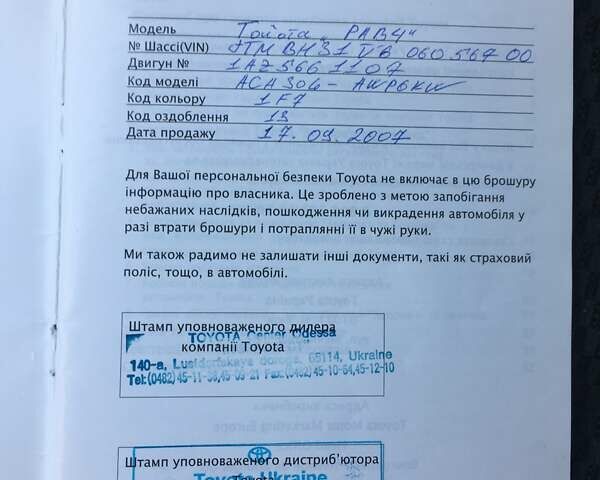 Модель Тойота „РАВ4"
№ Шассі(VIN) JTMBH31VB06056700
Двигун № 1AZ5661107
Код моделі ACA30L-AWPGKW
Код кольору 1F7
Код оздоблення 13
Дата продажу 17.09.2007
Для Вашої персональної безпеки Toyota не включає в цю брошуру
інформацію про власника. Це зроблено з метою запобігання
небажаних наслідків, пошкодження чи викрадення автомобіля у
разі втрати брошури і потраплянні її в чужі руки.
Ми також радимо не залишати інші документи, такі як страховий
поліс, тощо, в автомобілі.
Штамп уповноваженого дилера
TOYOTA Center Odessa
компанії Toyota
140-a, Lustdorfskaya doroga, 65114, Ukraine
Tel:(0482)45-11-36,45-09-21 Fax:(0482)45-10-64,45-12-10
Штамп уповноваженого дистриб'ютора
Toyota Ukraine
Toyota